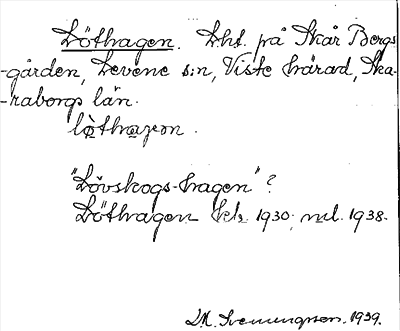 Löthagen. Lht. på Skår Bergs
-gården, Levene s:n, Viste härad, Ska-
-raborgs län.
lø̀thaɡen.
"Lövskogs-hagen"?
Löthagen Kek. 1930; nul. 1938.
L.M. Svenungsson. 1939.